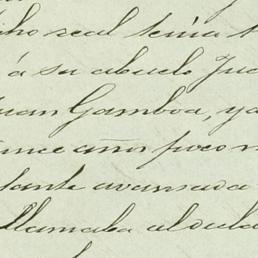 cho real tenia
á su abuelo Jua
Juan Gamboa, ya
once años poco m
tante avansada
llamaba al